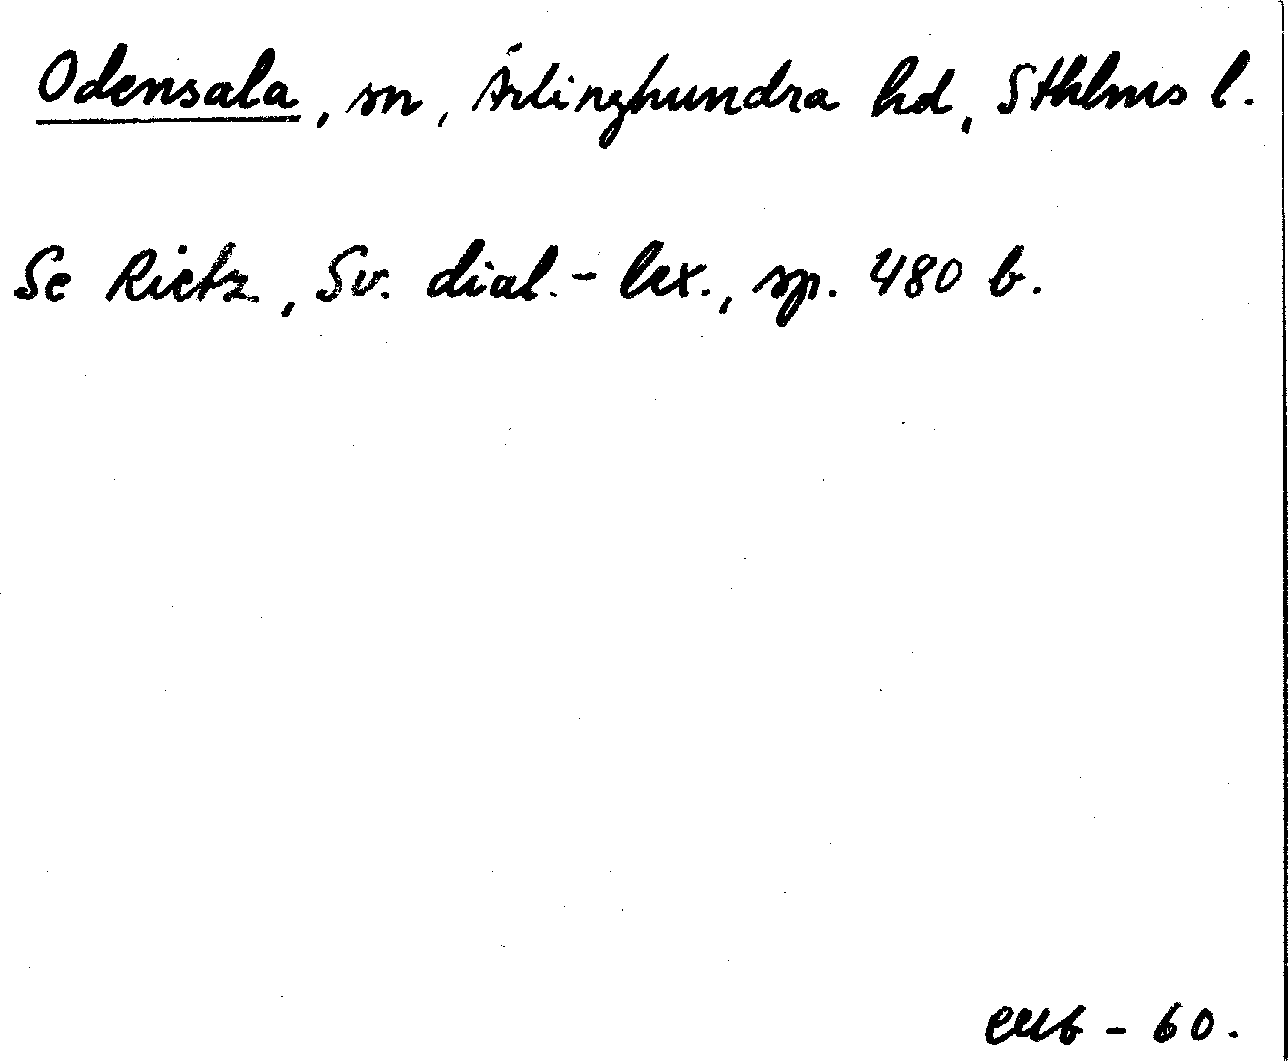 Odensala, sn, Ärlinghundra hd, Sthlms l.
Se Rietz, Sv. dial.-lex., sp. 480 b.
- 60.